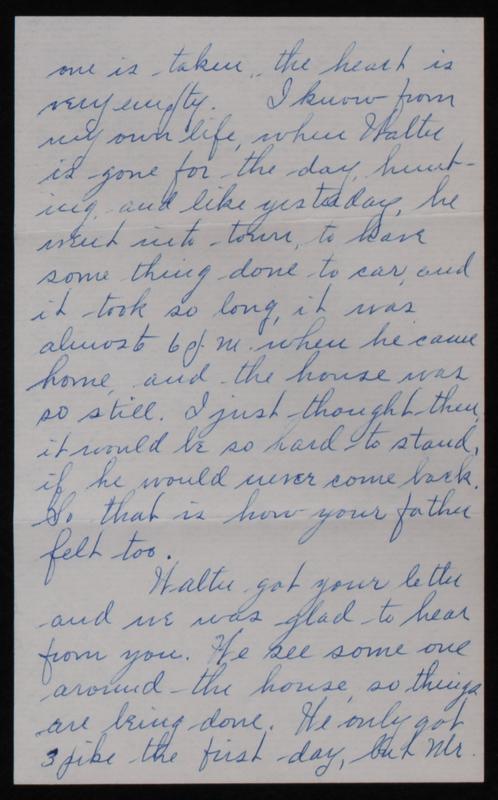 one is taken, the heart is
very empty. I know from
my own life, when Walter
is gone for the day, hunt-
ing, and like yesterday, he
went into town, to have
some thing done to car, and
it took so long, it was
almost 6 p.m. when he came
home, and the house was
so still. I just thought then,
it would be so hard to stand,
if he would never come back.
So that is how your father
felt too.
Walter got your letter
and we was glad to hear
from you. We see some one
around the house, so things
are being done. He only got
3 pike the first day, but Mr.